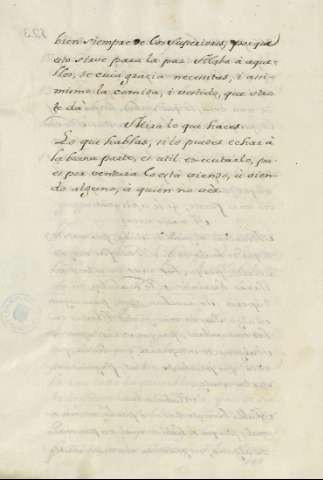 bien siempre de los Superiores, porque
esto sirve para la paz. Alaba á aque-
llos, de cuia gracia necesitas, i asi-
mismo la comida, i vestido, que otro
te dá.
Mira lo que haces.
Lo que hablas, si lo puedes echar á
la buena parte, es util executarlo, pu-
es por ventura lo está viendo, ú oien-
do alguno, á quien no vés.